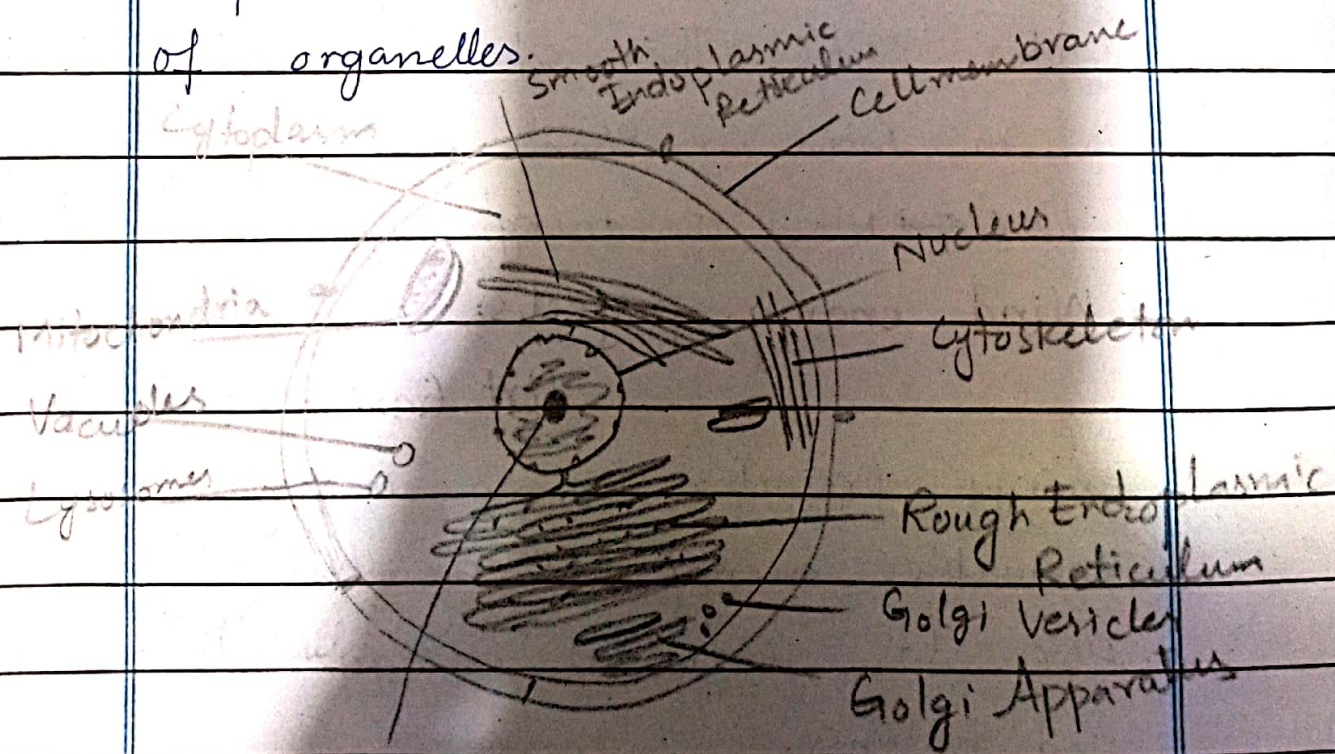 of organelles.
Smooth
Indoplasmic
Reticulum
Cell membrane
Cytoplasm
Nucleus
Mitochondria
Cytoskeleton
Vacuoles
Lysosomes
Rough Endoplasmic
Reticulum
Golgi Vesicles
Golgi Apparatus